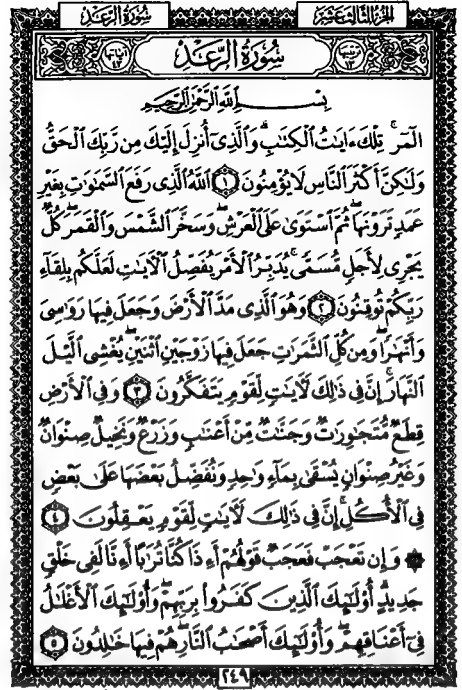 سُورَةُ الرَّعْدِ الجُزْءُ الثَّالِثَ عَشَرَ
سُورَةُ الرَّعْدِ
بِسْمِ اللَّهِ الرَّحْمَٰنِ الرَّحِيمِ
الٓمٓرۚ تِلْكَ ءَايَٰتُ الْكِتَٰبِۗ وَالَّذِىٓ أُنزِلَ إِلَيْكَ مِن رَّبِّكَ الْحَقُّ
وَلَٰكِنَّ أَكْثَرَ النَّاسِ لَا يُؤْمِنُونَ ١ اللَّهُ الَّذِى رَفَعَ السَّمَٰوَٰتِ بِغَيْرِ
عَمَدٍ تَرَوْنَهَاۖ ثُمَّ اسْتَوَىٰ عَلَى الْعَرْشِۖ وَسَخَّرَ الشَّمْسَ وَالْقَمَرَۖ كُلٌّ
يَجْرِى لِأَجَلٍ مُّسَمًّىۚ يُدَبِّرُ الْأَمْرَ يُفَصِّلُ الْءَايَٰتِ لَعَلَّكُم بِلِقَآءِ
رَبِّكُمْ تُوقِنُونَ ٢ وَهُوَ الَّذِى مَدَّ الْأَرْضَ وَجَعَلَ فِيهَا رَوَٰسِىَ
وَأَنْهَٰرًاۖ وَمِن كُلِّ الثَّمَرَٰتِ جَعَلَ فِيهَا زَوْجَيْنِ اثْنَيْنِۖ يُغْشِى الَّيْلَ
النَّهَارَۚ إِنَّ فِى ذَٰلِكَ لَءَايَٰتٍ لِّقَوْمٍ يَتَفَكَّرُونَ ٣ وَفِى الْأَرْضِ
قِطَعٌ مُّتَجَٰوِرَٰتٌ وَجَنَّٰتٌ مِّنْ أَعْنَٰبٍ وَزَرْعٌ وَنَخِيلٌ صِنْوَانٌ
وَغَيْرُ صِنْوَانٍ يُسْقَىٰ بِمَآءٍ وَٰحِدٍ وَنُفَضِّلُ بَعْضَهَا عَلَىٰ بَعْضٍ
فِى الْأُكُلِۚ إِنَّ فِى ذَٰلِكَ لَءَايَٰتٍ لِّقَوْمٍ يَعْقِلُونَ ٤
۞ وَإِن تَعْجَبْ فَعَجَبٌ قَوْلُهُمْ أَءِذَا كُنَّا تُرَٰبًا أَءِنَّا لَفِى خَلْقٍ
جَدِيدٍۗ أُو۟لَٰٓئِكَ الَّذِينَ كَفَرُوا۟ بِرَبِّهِمْۖ وَأُو۟لَٰٓئِكَ الْأَغْلَٰلُ
فِىٓ أَعْنَاقِهِمْۖ وَأُو۟لَٰٓئِكَ أَصْحَٰبُ النَّارِۖ هُمْ فِيهَا خَٰلِدُونَ ٥
٢٤٩